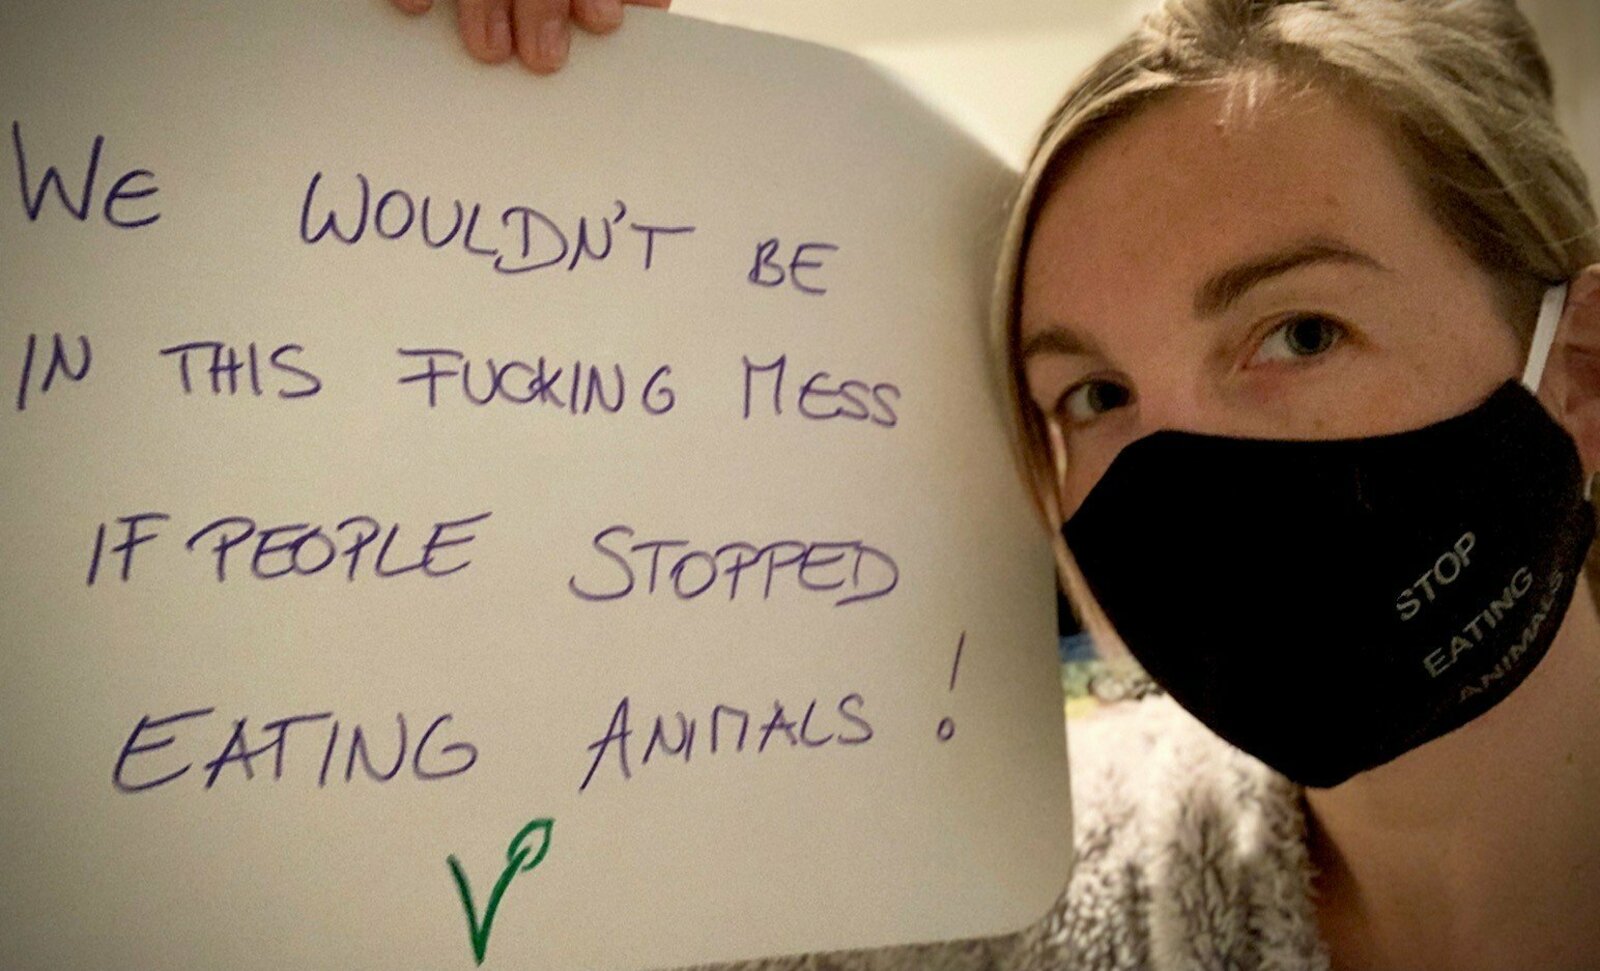 WE WOULDN'T BE
IN THIS FUCKING MESS
IF PEOPLE STOPPED
EATING ANIMALS!
V
STOP
EATING
ANIMALS